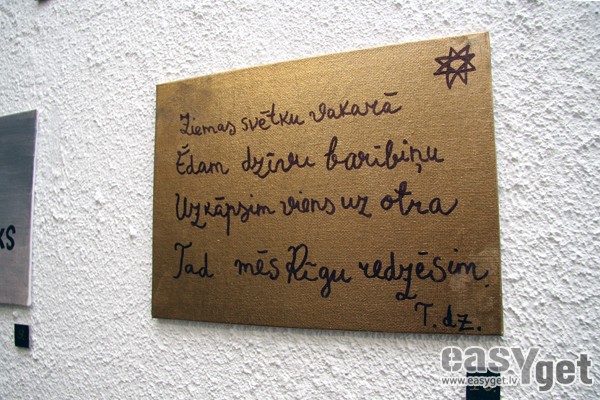 Ziemas svētku vakarā
Ēdam dzīvu barībiņu
Uzkāpsim viens uz otra
Tad mēs Rīgu redzēsim.
T. dz.
KS
easYget
www.easyget.lv